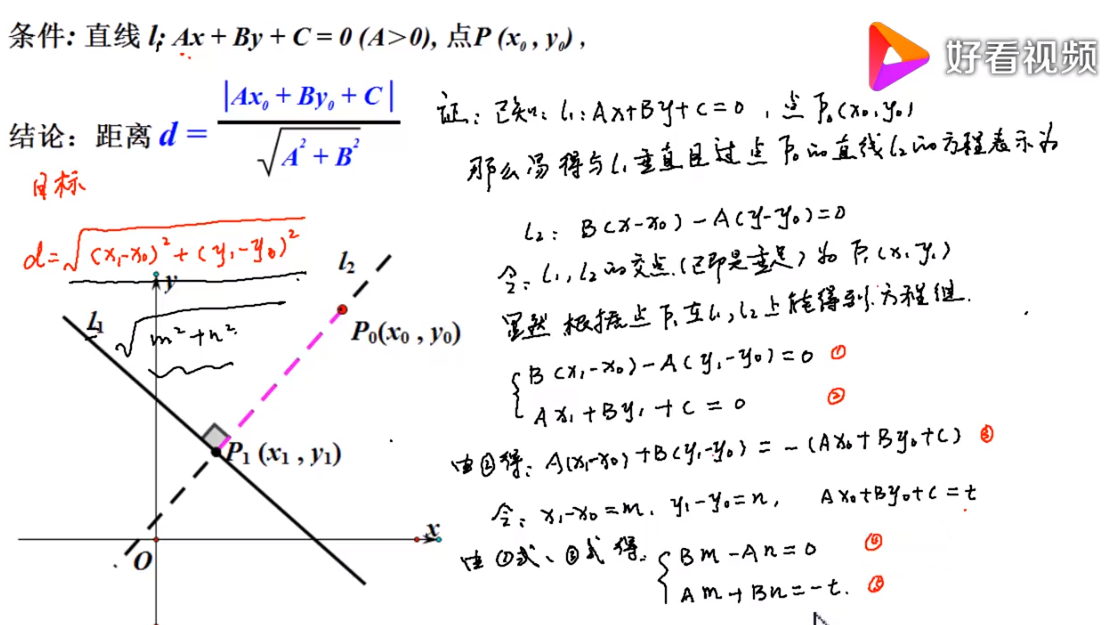 条件: 直线 l₁: Ax + By + C = 0 (A>0), 点P (x₀ , y₀) ,
好看视频
结论: 距离 d = |Ax₀ + By₀ + C| / √(A² + B²)
目标
d=√((x₁-x₀)²+(y₁-y₀)²)
√(m²+n²)
证: 已知: l₁: Ax+By+C=0 , 点P₀(x₀,y₀)
那么易得与l₁垂直且过点P₀的直线l₂的方程表示为
l₂: B(x-x₀)-A(y-y₀)=0
令: l₁, l₂的交点(也即是垂足)为P₁(x₁,y₁)
显然 根据点P₁在l₁, l₂上能得到方程组.
B(x₁-x₀)-A(y₁-y₀)=0 ①
Ax₁+By₁+C=0 ②
由②得: A(x₁-x₀)+B(y₁-y₀)=-(Ax₀+By₀+C) ③
令: x₁-x₀=m, y₁-y₀=n, Ax₀+By₀+C=t
由①式、③式得:
Bm-An=0 ④
Am+Bn=-t. ⑤
y
l₂
l₁
P₀(x₀ , y₀)
P₁ (x₁ , y₁)
x
O